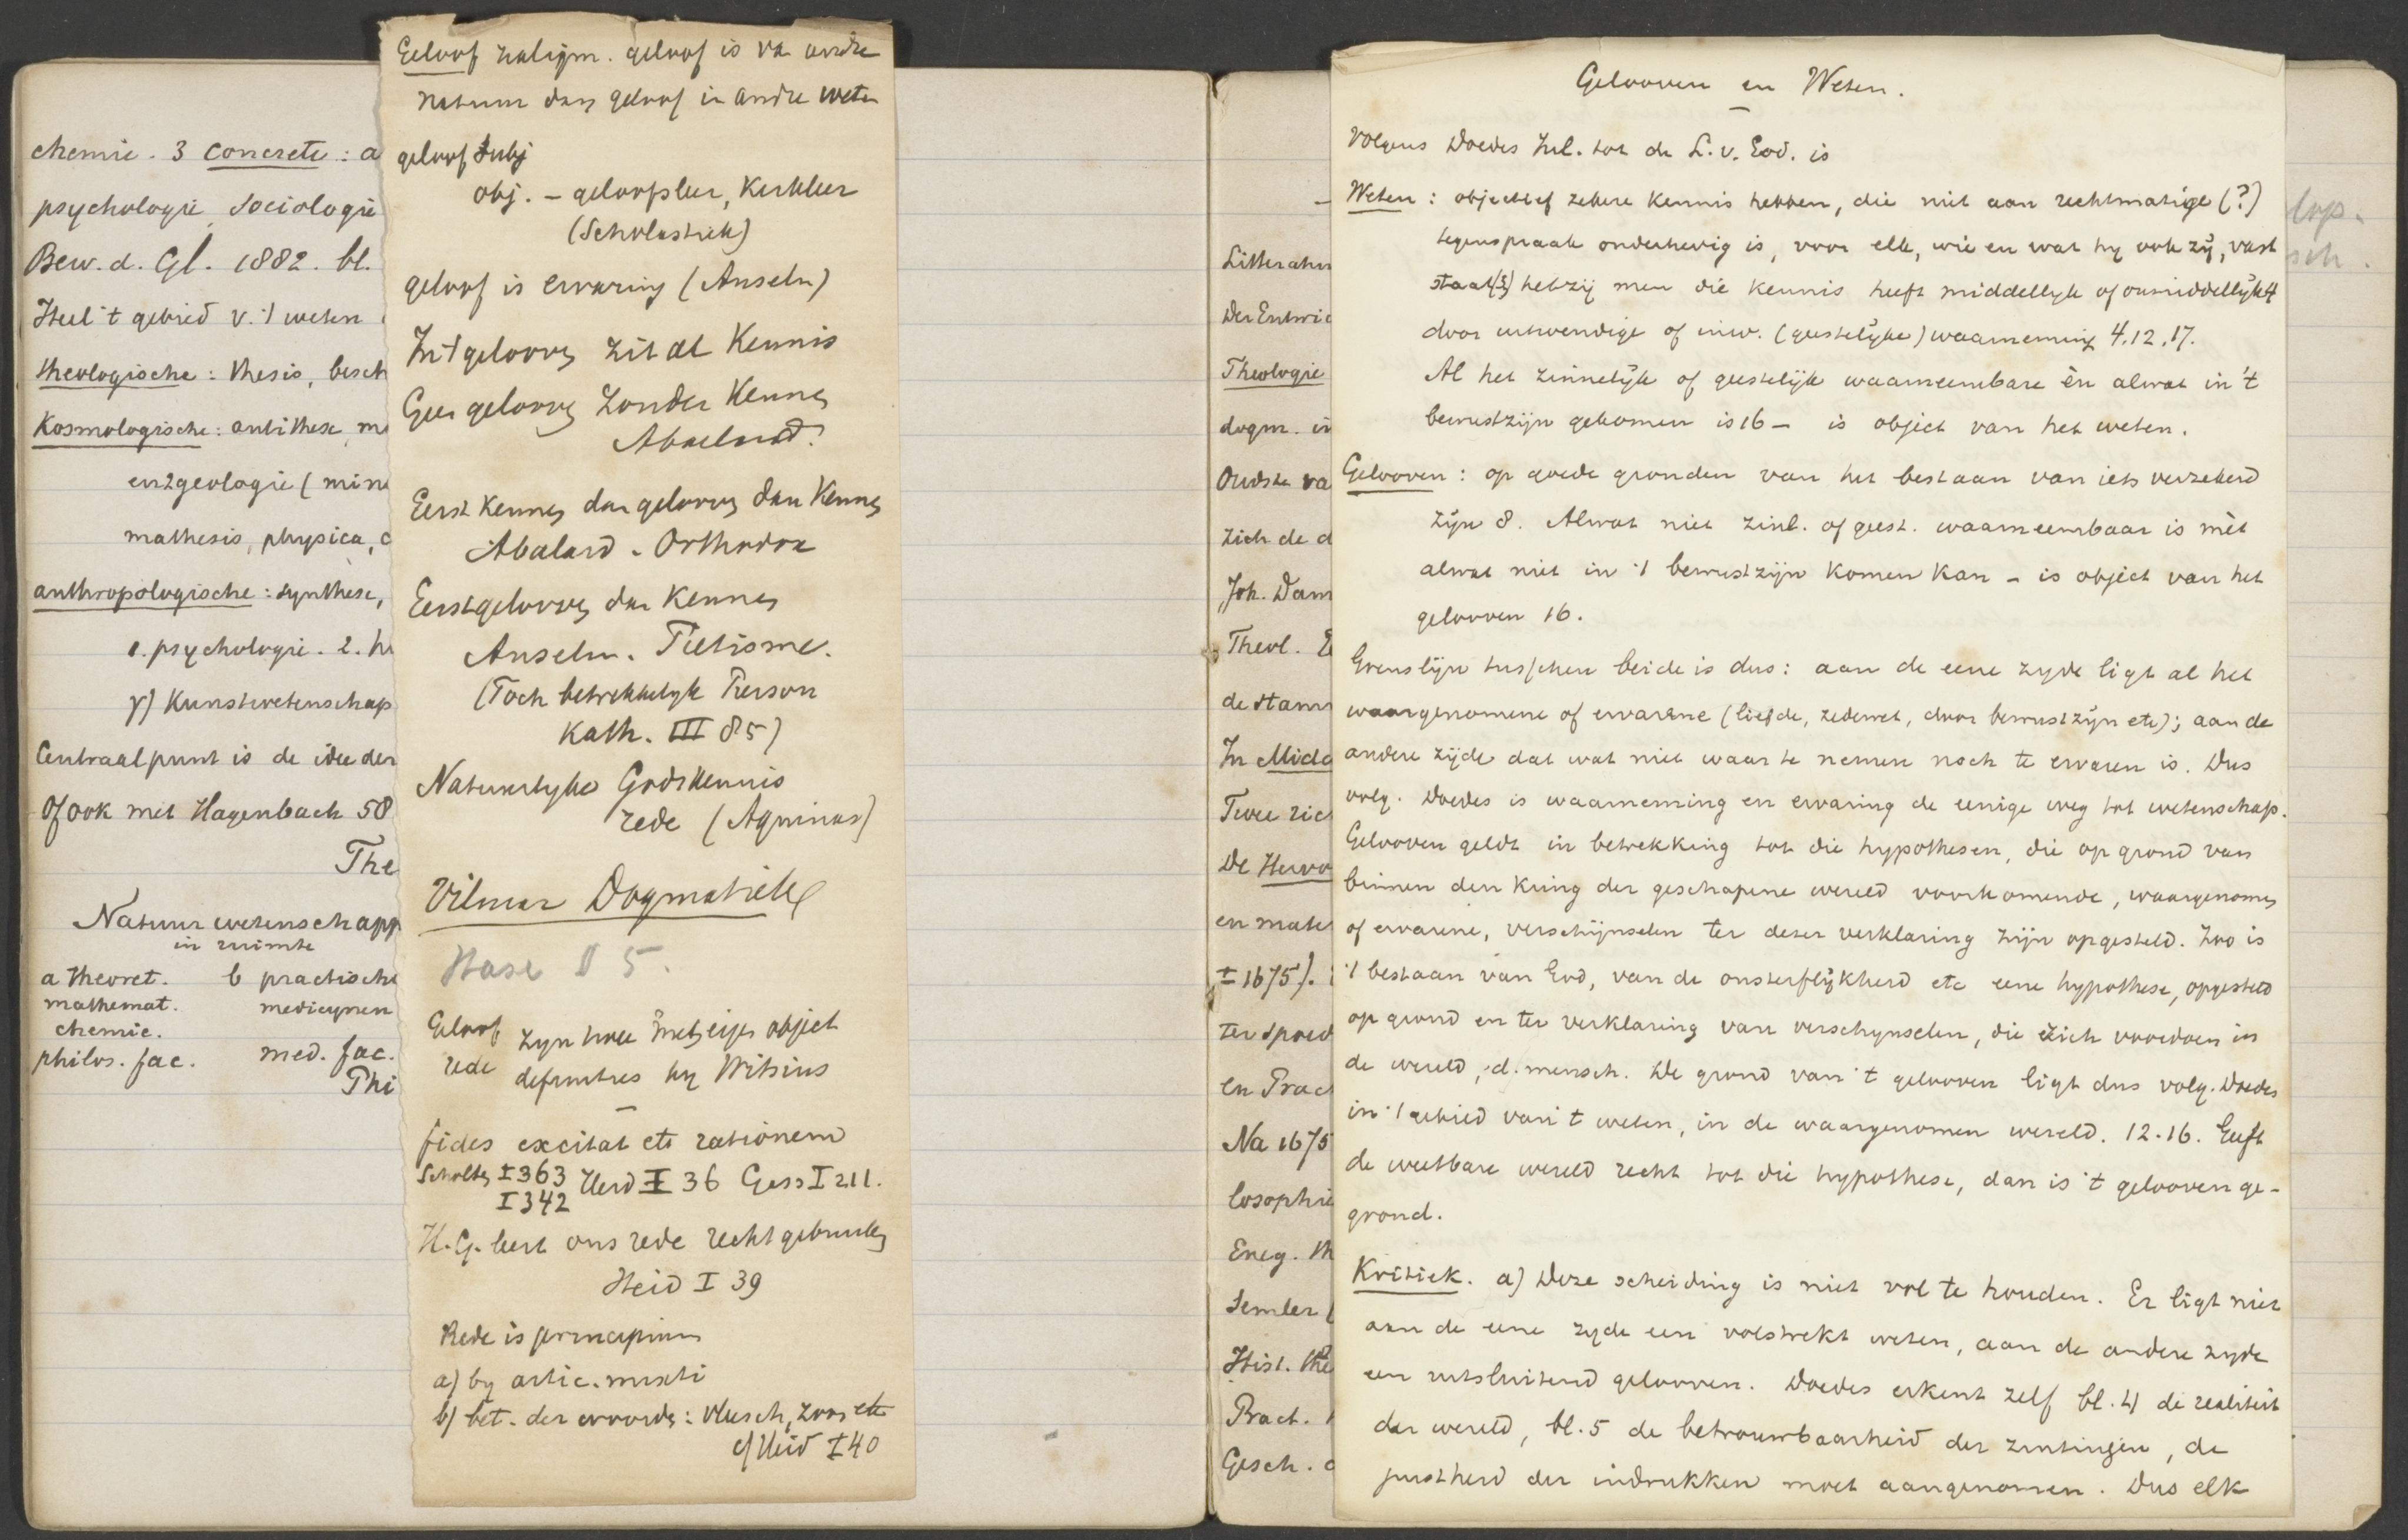 chemie. 3 concrete: a
psychologie, sociologie
Bew. d. Gl. 1882. bl.
Heel 't gebied v. 't weten
theologische: thesis, besch
Kosmologische: antithese, m
en 2 geologie (mine
mathesis, physica, c
anthropologische: synthese,
1. psychologie. 2. h
γ) Kunstwetenschap
Centraalpunt is de idee der
Of ook met Hagenbach 58
The
Natuurwetenschapp
in ruimte
a theoret. b practische
mathemat. medicynen
chemie.
philos. fac. med. fac.
Phi
Geloof zaligm. geloof is va andre
natuur dan geloof in andre weten
geloof subj
obj. – geloofsleer, Kerkleer
(Scholastiek)
geloof is ervaring (Anselm)
In 't geloovn zit al Kennis
Geen geloovn zonder Kennis
Abaelard.
Eerst Kennen dan geloovn dan Kennen
Abalard. Orthodox
Eerst geloovn dan Kennen
Anselm. Pietisme.
(Toch betrekkelyk Pierson
Kath. III 85)
Natuurlyke Godskennis
rede (Aquinas)
Vilmar Dogmatiek
Hase § 5.
Geloof zyn twee met eigen object
rede definities by Witsius
fides excitat etc rationem
Scholten I 363 Heid I 36 Gess I 211.
I 342
H. G. leert ons rede recht gebruiken
Heid I 39
Rede is principium
a) by artic. mixti
b) bet. der woorden: vleesch, zoon etc
cf Heid I 40
Litteratuu
Der Entwic
Theologie
dogm. in
Oudste va
zich de d
Joh. Dam
Theol. E
de stam
In Midd
Twee ric
De Hervo
en mate
± 1675).
ter spoed
en Prac
Na 1675
losophie
Encg. th
Semler (
Hist. the
Pract.
Gesch. d
Gelooven en Weten.
Volgens Doedes Inl. tot de L. v. God. is
Weten: objectief zekere kennis hebben, die niet aan rechtmatige (?)
tegenspraak onderhevig is, voor elk, wie en wat hy ook zy, vast
staat (3) hetzij men die kennis heeft middellyk of onmiddellyk 4
door uitwendige of inw. (geestelyke) waarneming 4.12.17.
Al het zinnelyk of geestelijk waarneembare èn alwat in 't
bewustzijn gekomen is 16 – is object van het weten.
Gelooven: op goede gronden van het bestaan van iets verzekerd
zijn 8. Alwat niet zinl. of geest. waarneembaar is mèt
alwat niet in 't bewustzijn komen kan – is object van het
gelooven 16.
Grenslijn tusschen beide is dus: aan de eene zyde ligt al het
waargenomene of ervarene (liefde, zedewet, door bewustzijn etc); aan de
andere zijde dat wat niet waar te nemen noch te ervaren is. Dus
volg. Doedes is waarneming en ervaring de eenige weg tot wetenschap.
Gelooven geldt in betrekking tot die hypothesen, die op grond van
binnen den kring der geschapene wereld voorkomende, waargenomen
of ervarene, verschijnselen ter dezer verklaring zijn opgesteld. Zoo is
't bestaan van God, van de onsterflijkheid etc eene hypothese, opgesteld
op grond en ter verklaring van verschynselen, die zich voordoen in
de wereld, d. mensch. De grond van 't gelooven ligt dus volg. Doedes
in 't gebied van 't weten, in de waargenomen wereld. 12.16. Geeft
de weetbare wereld recht tot die hypothese, dan is 't gelooven ge-
grond.
Kritiek. a) Deze scheiding is niet vol te houden. Er ligt niet
aan de eene zyde een volstrekt weten, aan de andere zyde
een uitsluitend gelooven. Doedes erkent zelf bl. 4 de realiteit
der wereld, bl. 5 de betrouwbaarheid der zintuigen, de
juistheid der indrukken moet aangenomen. Dus elk
lop.
sch.